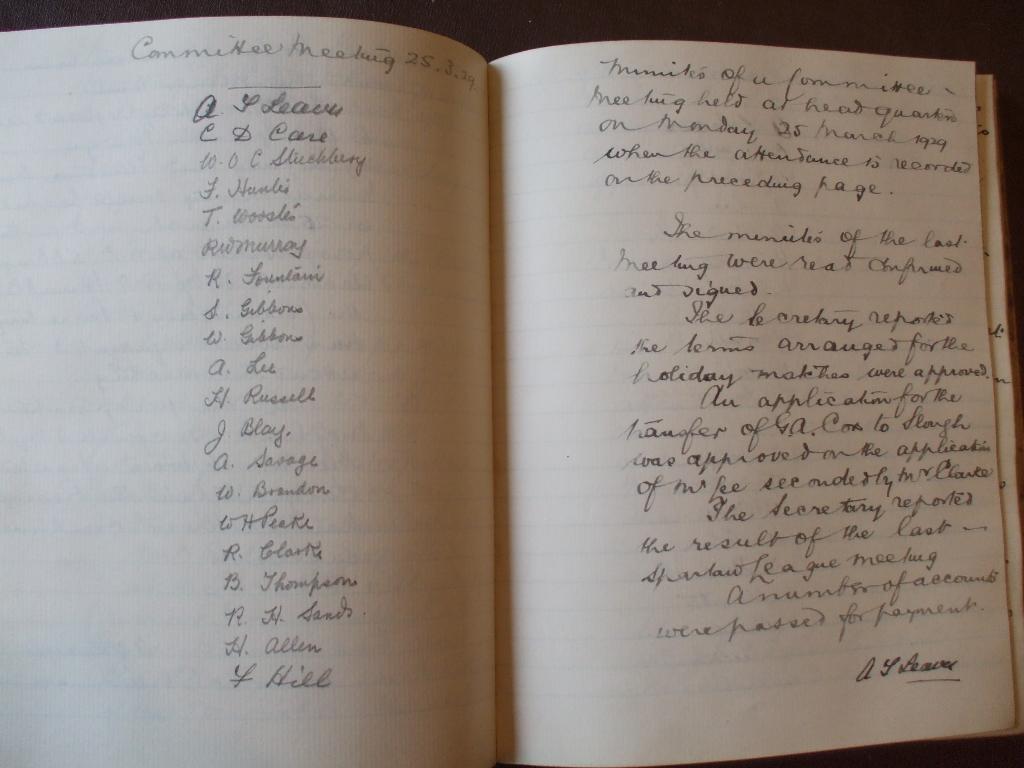 Committee Meeting 25.3.29.
A S Leaver
C D Care
W. O. C. Stuchbery
F. Hunt
T. Wooster
R W Murray
R. Fountain
S. Gibbons
W. Gibbons
A. Lee
H. Russell
J Blay.
A. Savage
W. Brandon
W H Peake
R. Clarke
B. Thompson
R. H. Sands.
H. Allen
F Hill
Minutes of a Committee -
Meeting held at head quarters
on Monday 25 March 1929
when the attendance is recorded
on the preceding page.
The minutes of the last
Meeting were read confirmed
and signed.
The Secretary reported
the terms arranged for the
holiday matches were approved.
An application for the
transfer of G.A. Cox to Slough
was approved on the application
of Mr Lee seconded by Mr Clarke
The Secretary reported
the result of the last -
Spartan League meeting
A number of accounts
were passed for payment.
A S Leaver